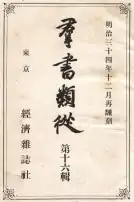 明治三十四年十二月再翻刻
羣書類從
第十六輯
東京
經濟雜誌社